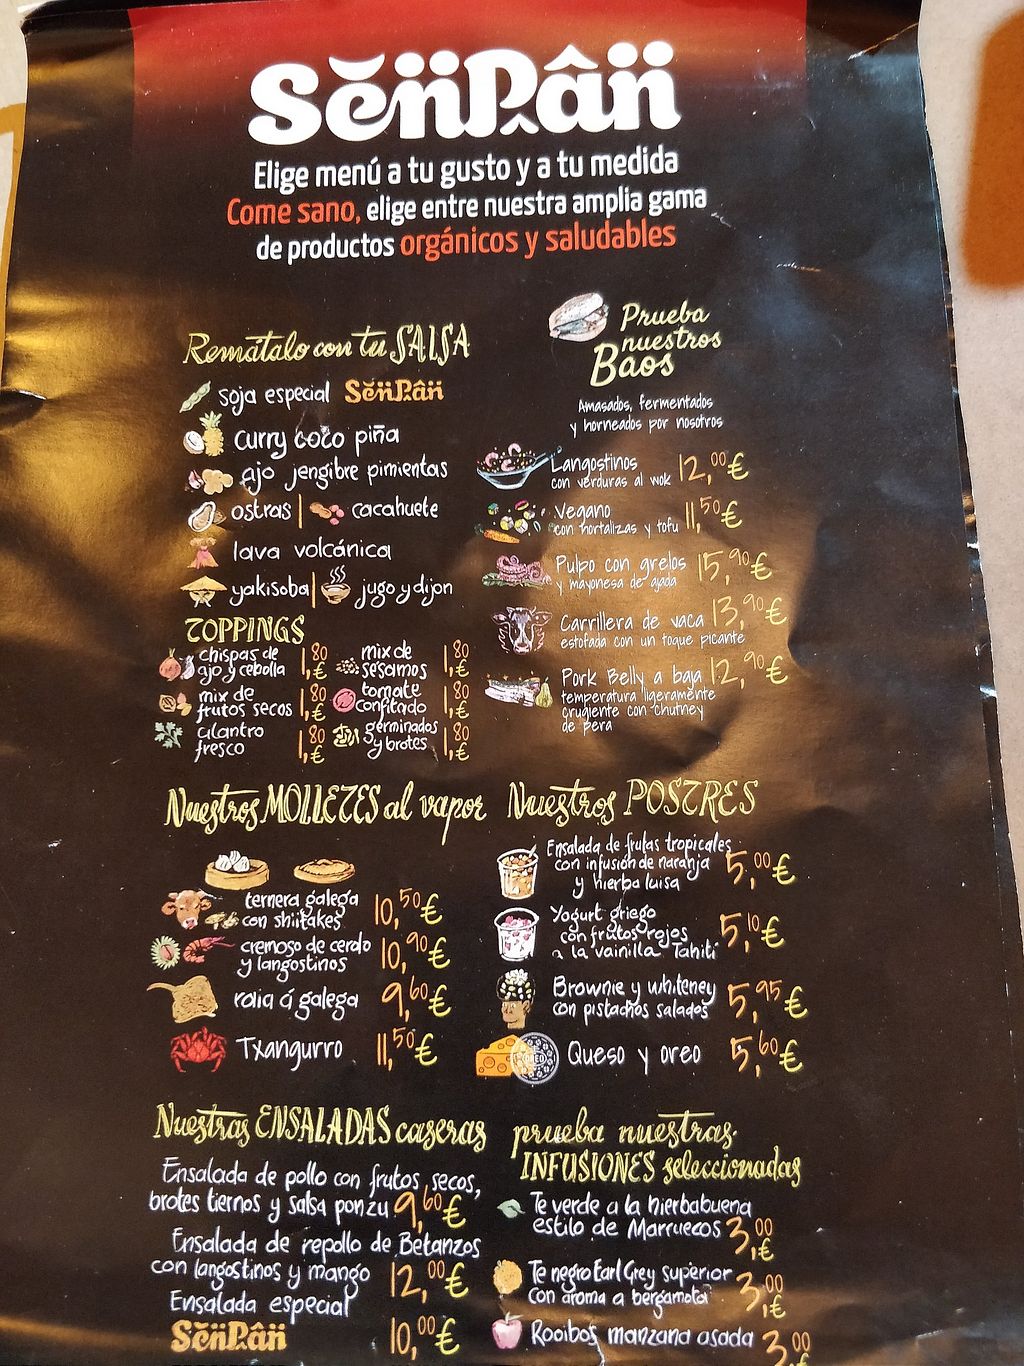 SenPan
Elige menú a tu gusto y a tu medida
Come sano, elige entre nuestra amplia gama
de productos orgánicos y saludables
Remátalo con tu SALSA
soja especial SenPan
curry coco piña
ajo jengibre pimientas
ostras | cacahuete
lava volcánica
yakisoba | jugo y dijon
TOPPINGS
chispas de
ajo y cebolla 1,80 €
mix de
sésamos 1,80 €
mix de
frutos secos 1,80 €
tomate
confitado 1,80 €
cilantro
fresco 1,80 €
germinados
y brotes 1,80 €
Prueba
nuestros
Baos
Amasados, fermentados
y horneados por nosotros
Langostinos
con verduras al wok 12,00 €
Vegano
con hortalizas y tofu 11,50 €
Pulpo con grelos
y mayonesa de ajada 15,90 €
Carrillera de vaca 13,90 €
estofada con un toque picante
Pork Belly a baja 12,90 €
temperatura ligeramente
crugiente con chutney
de pera
Nuestros MOLLETES al vapor
ternera galega
con shiitakes 10,50 €
cremoso de cerdo
y langostinos 10,90 €
raia á galega 9,60 €
Txangurro 11,50 €
Nuestros POSTRES
Ensalada de frutas tropicales
con infusión de naranja
y hierba luisa 5,00 €
Yogurt griego
con frutos rojos
a la vainilla Tahití 5,10 €
Brownie y whiteney
con pistachos salados 5,95 €
OREO
Queso y oreo 5,60 €
Nuestras ENSALADAS caseras
Ensalada de pollo con frutos secos,
brotes tiernos y salsa ponzu 9,60 €
Ensalada de repollo de Betanzos
con langostinos y mango 12,00 €
Ensalada especial
SenPan 10,00 €
prueba nuestras
INFUSIONES seleccionadas
Te verde a la hierbabuena
estilo de Marruecos 3,00 €
Te negro Earl Grey superior
con aroma a bergamota 3,00 €
Rooibos manzana asada 3,00 €